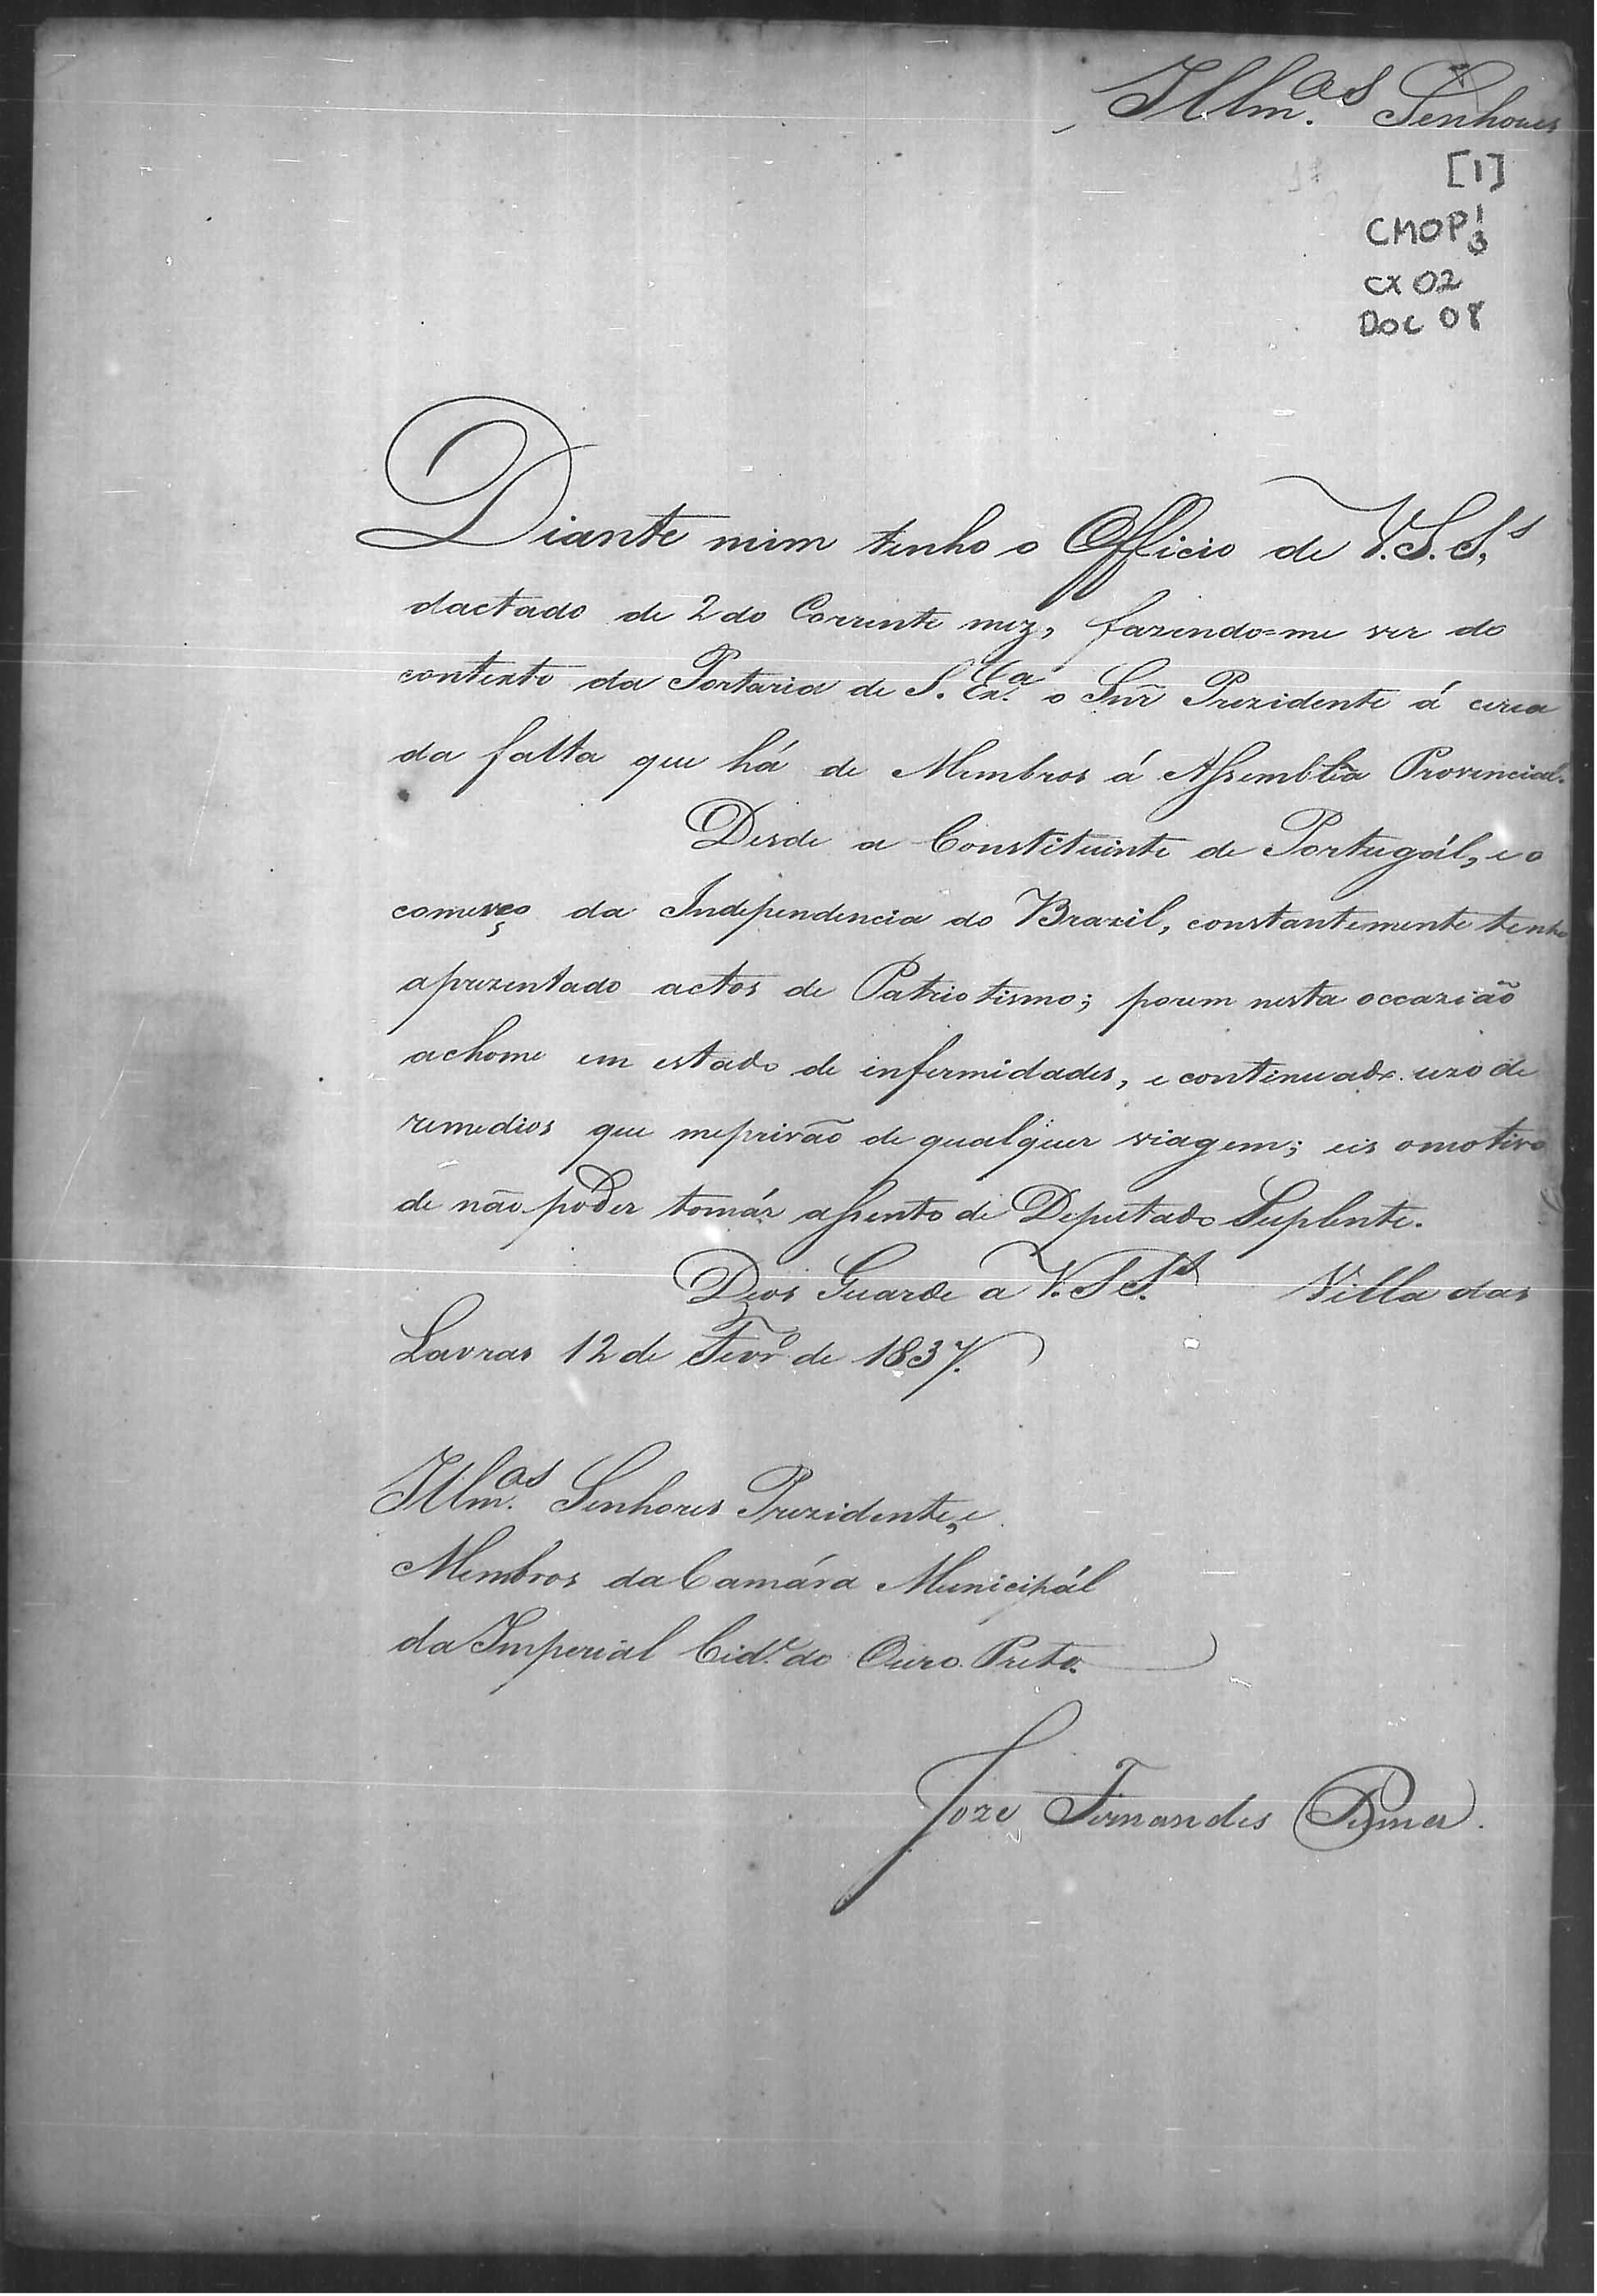 Illm.os Senhores
[1]
CMOP 1/3
CX 02
DOC 08
Diante mim tenho o Officio de V.S.S.s
dactado de 2 do Corrente mez, fazendo=me ver do
contexto da Portaria de S. Ex.a o Snr Prezidente á cerca
da falta que há de Membros á Assemblea Provincial.
Desde a Constituinte de Portugál, e o
começo da Independencia do Brazil, constantemente tenho
aprezentado actos de Patriotismo; porem nesta occazião
achome em estado de infermidades, e continuado uzo de
remedios que meprivão de qualquer viagem; eis omotivo
de não poder tomár assento de Deputado Suplente.
Deos Guarde a V.S S.s Villa das
Lavras 12 de Fevr.o de 1837.
Illm.os Senhores Prezidente, e
Membros da Camára Municipál
da Imperial Cid.e do Ouro Preto.
Joze Fernandes